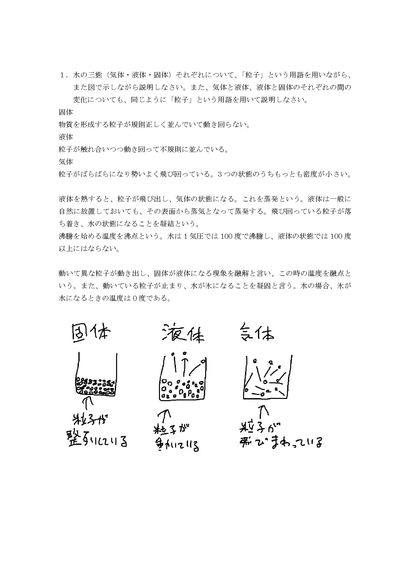 １．水の三態（気体・液体・固体）それぞれについて、「粒子」という用語を用いながら、
また図で示しながら説明しなさい。また、気体と液体、液体と固体のそれぞれの間の
変化についても、同じように「粒子」という用語を用いて説明しなさい。
固体
物質を形成する粒子が規則正しく並んでいて動き回らない。
液体
粒子が触れ合いつつ動き回って不規則に並んでいる。
気体
粒子がばらばらになり勢いよく飛び回っている。3つの状態のうちもっとも密度が小さい。
液体を熱すると、粒子が飛び出し、気体の状態になる。これを蒸発という。液体は一般に
自然に放置しておいても、その表面から蒸気となって蒸発する。飛び回っている粒子が落
ち着き、水の状態になることを凝結という。
沸騰を始める温度を沸点という。水は１気圧では 100 度で沸騰し、液体の状態では 100 度
以上にはならない。
動いて異な粒子が動き出し、固体が液体になる現象を融解と言い、この時の温度を融点と
いう。また、動いている粒子が止まり、水が氷になることを凝固と言う。水の場合、氷が
水になるときの温度は０度である。
固体 液体 気体
粒子が 粒子が 粒子が
整列している 動いている 飛びまわっている